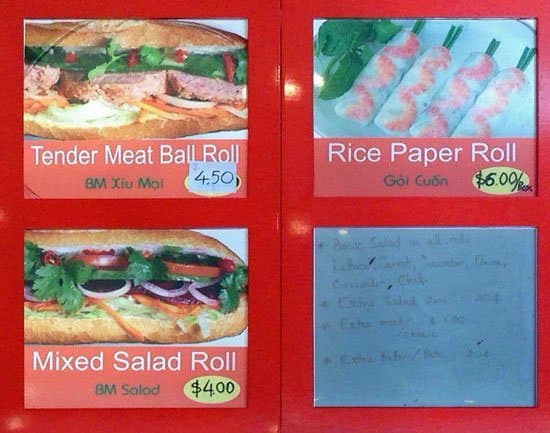 Tender Meat Ball Roll
BM Xíu Mại
4.50
Rice Paper Roll
Gỏi Cuốn
$6.00/Box
Mixed Salad Roll
BM Salad
$4.00
* Basic Salad on all rolls
Lettuce, Carrot, Cucumber, Onion,
Coriander, Chilli
* Extra Salad
* Extra meat
* Extra